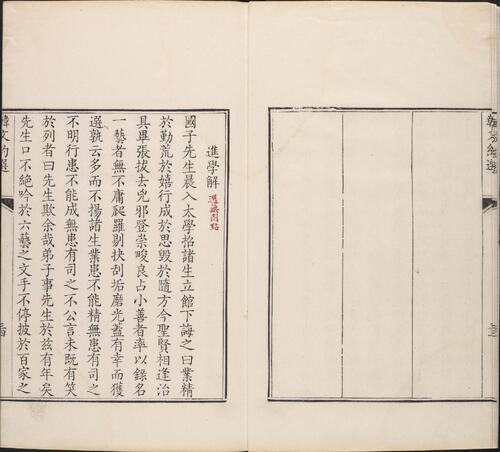 進學解
國子先生晨入太學招諸生立館下誨之曰業精
於勤荒於嬉行成於思毀於隨方今聖賢相逢治
具畢張拔去兇邪登崇畯良占小善者率以錄名
一藝者無不庸爬羅剔抉刮垢磨光蓋有幸而獲
選孰云多而不揚諸生業患不能精無患有司之
不明行患不能成無患有司之不公言未既有笑
於列者曰先生欺余哉弟子事先生於茲有年矣
先生口不絕吟於六藝之文手不停披於百家之